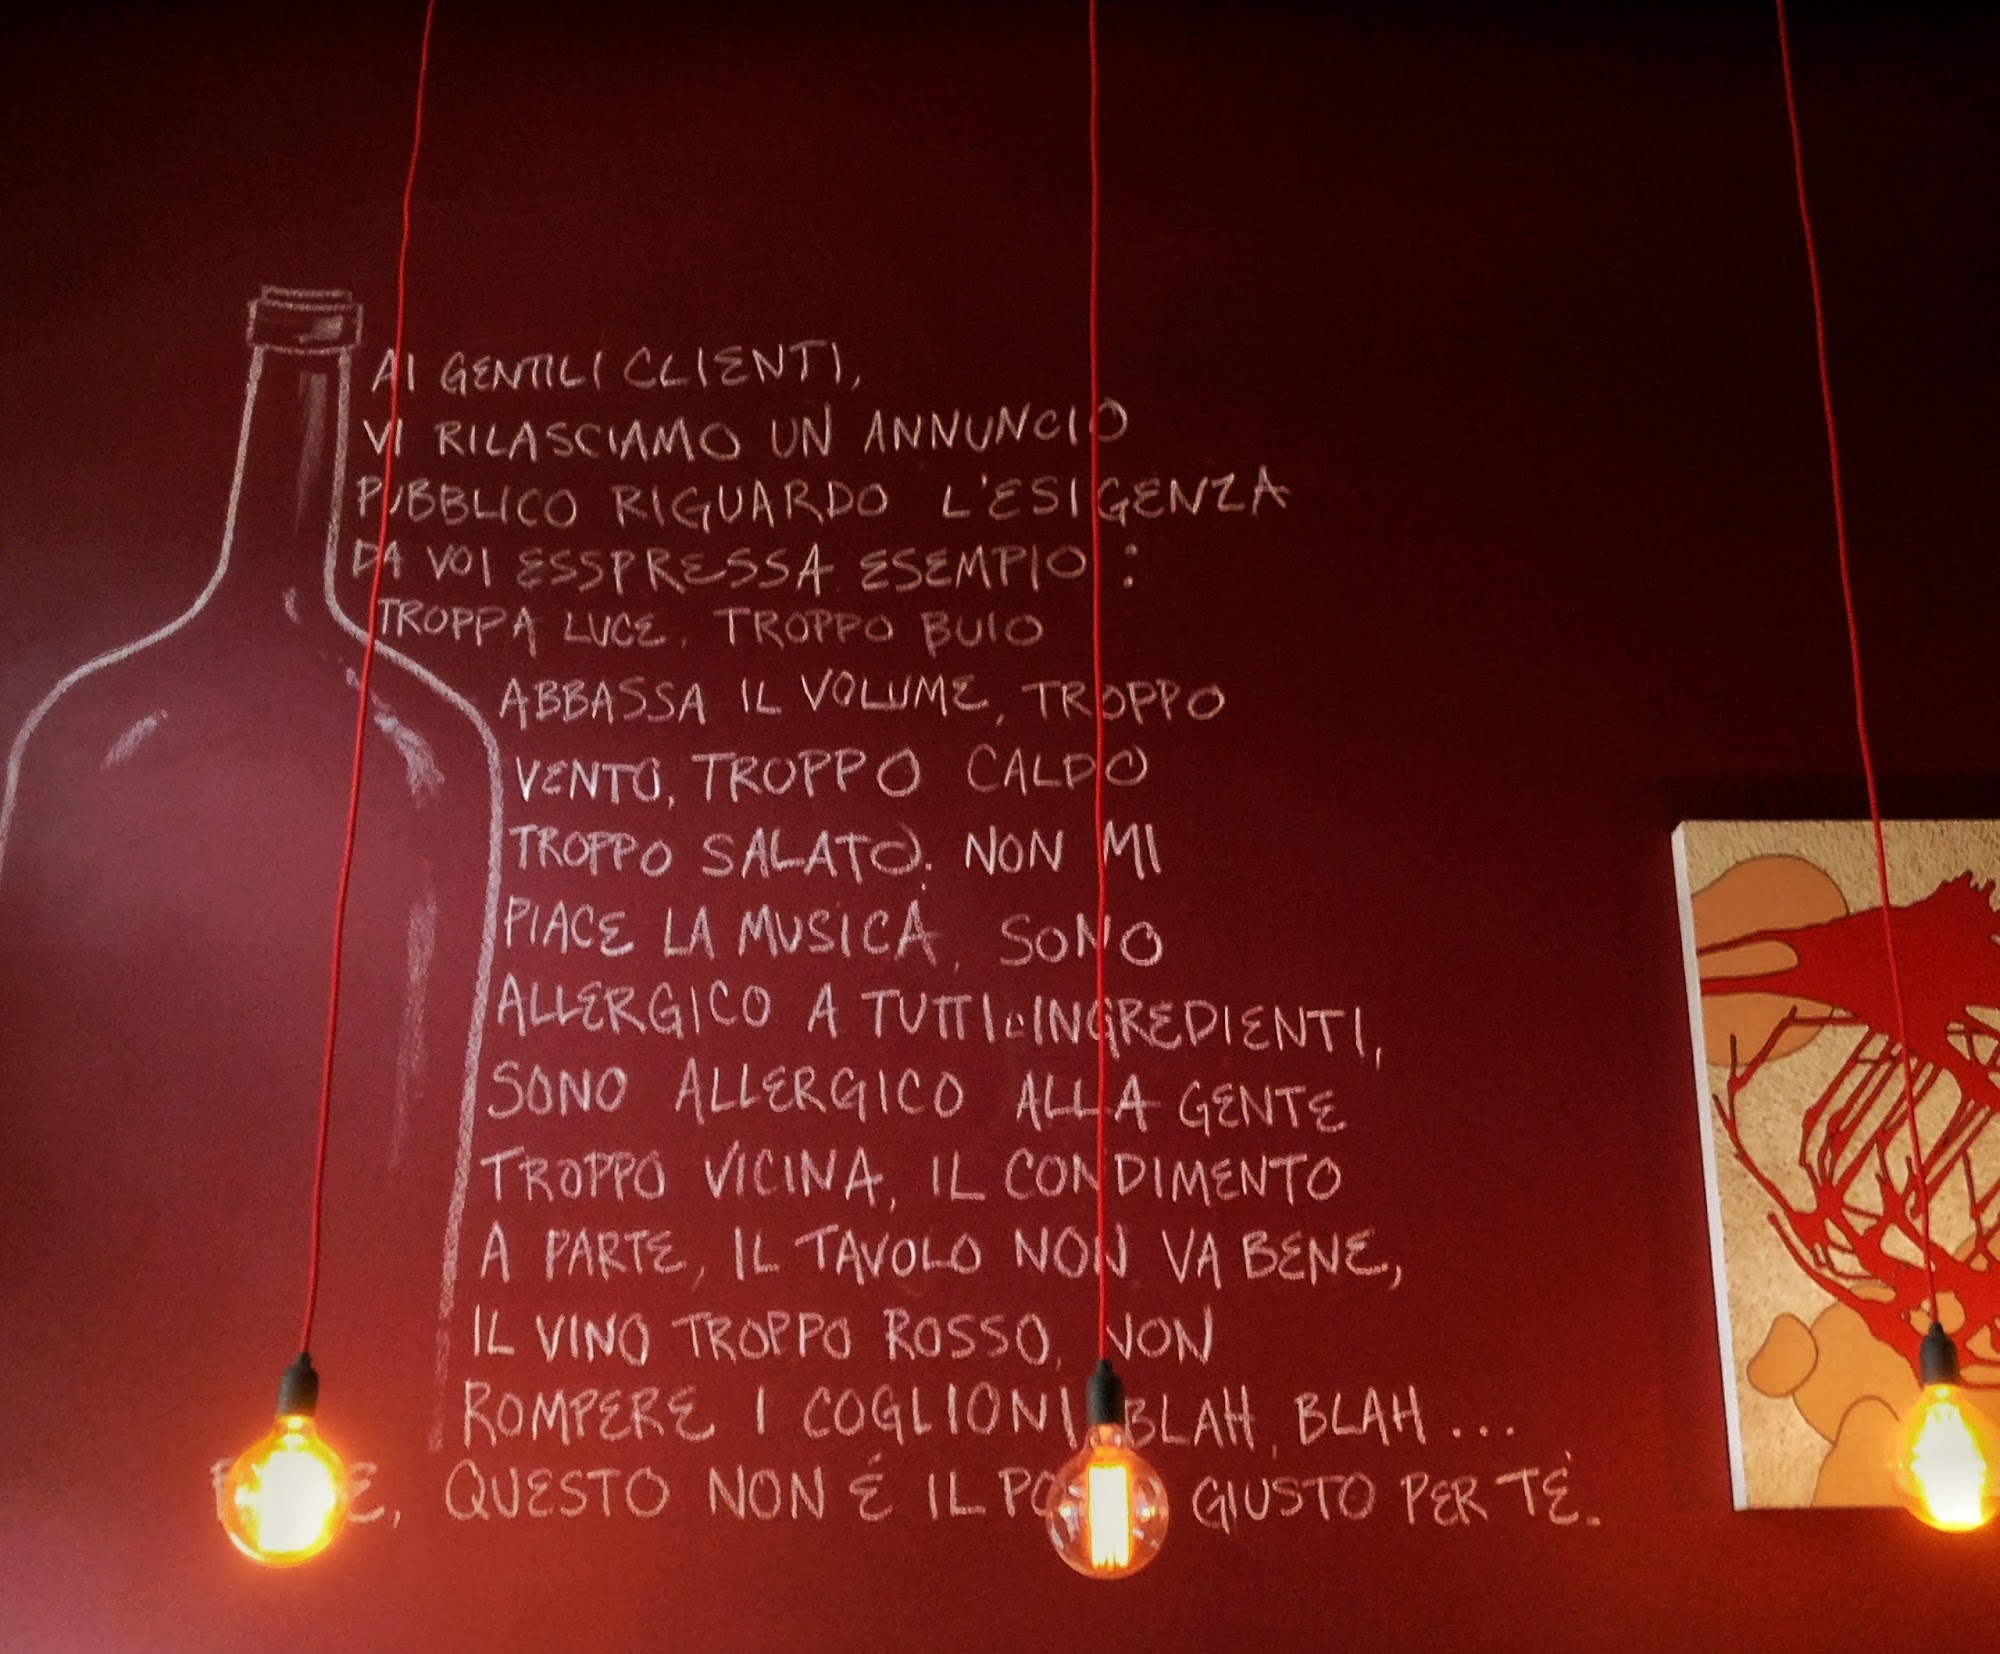 AI GENTILI CLIENTI,
VI RILASCIAMO UN ANNUNCIO
PUBBLICO RIGUARDO L'ESIGENZA
DA VOI ESSPRESSA ESEMPIO :
TROPPA LUCE, TROPPO BUIO
ABBASSA IL VOLUME, TROPPO
VENTO, TROPPO CALDO
TROPPO SALATO. NON MI
PIACE LA MUSICA, SONO
ALLERGICO A TUTTI INGREDIENTI,
SONO ALLERGICO ALLA GENTE
TROPPO VICINA, IL CONDIMENTO
A PARTE, IL TAVOLO NON VA BENE,
IL VINO TROPPO ROSSO, NON
ROMPERE I COGLIONI BLAH, BLAH...
QUESTO NON É IL GIUSTO PER TÉ.